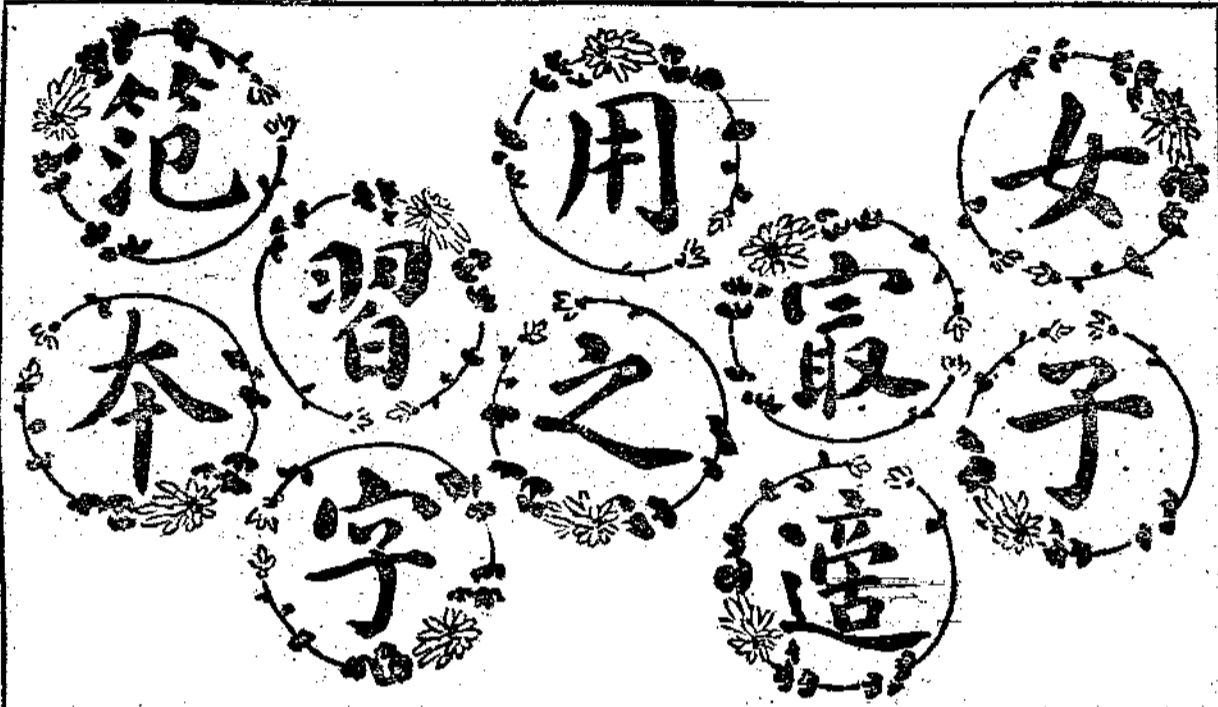 女子
㝡適
用之
習字
笵本